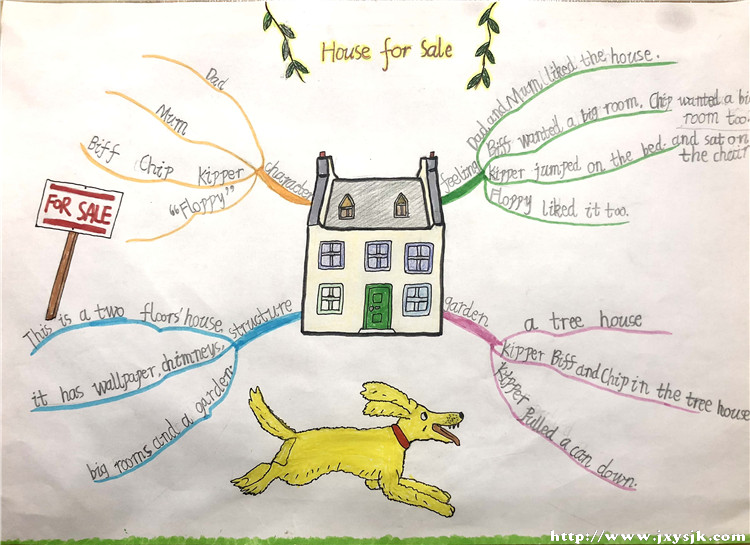 House for sale
character
Dad
Mum
Biff Chip Kipper
"Floppy"
FOR SALE
feeling
Dad and Mum liked the house.
Biff wanted a big room. Chip wanted a bi
room too.
Kipper jumped on the bed. and sat on
the chair
Floppy liked it too.
structure
This is a two floors' house.
it has wallpaper, chimneys,
big rooms and a garden.
garden
a tree house
Kipper Biff and Chip in the tree house
Kipper Pulled a can down.
http://www.jxysjk.com